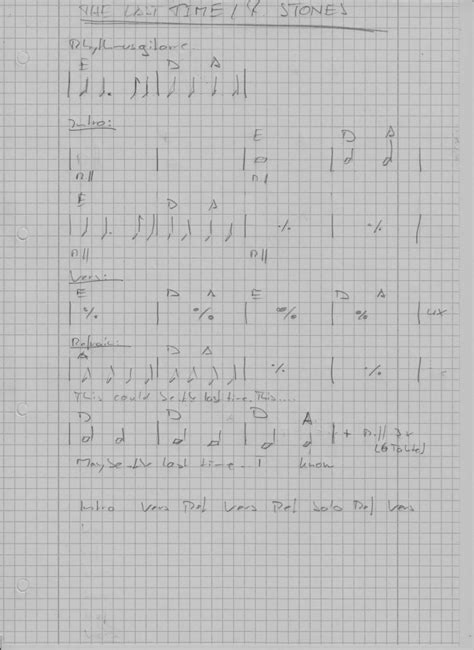 THE LAST TIME / STONES
Rhythmusgitarre
E D A
Intro:
E D A
E D A
Vers:
E D A E D A
4x
Refrain:
A D A
This could be the last time, This ....
D D D A
3x
Maybe the last time .. I know
Intro Vers Ref Vers Ref Solo Ref Vers